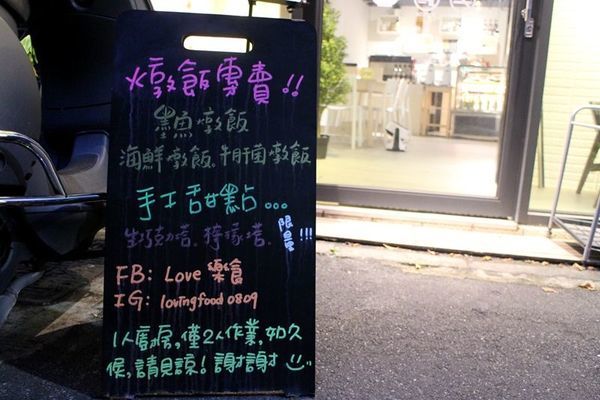 燉飯專賣!!
墨魚燉飯
海鮮燉飯.牛肝菌燉飯
手工甜點...
生巧克力塔.檸檬塔.
限量!!!
FB: Love 樂食
IG: lovingfood0809
1人廚房,僅2人作業,如久
候,請見諒!謝謝